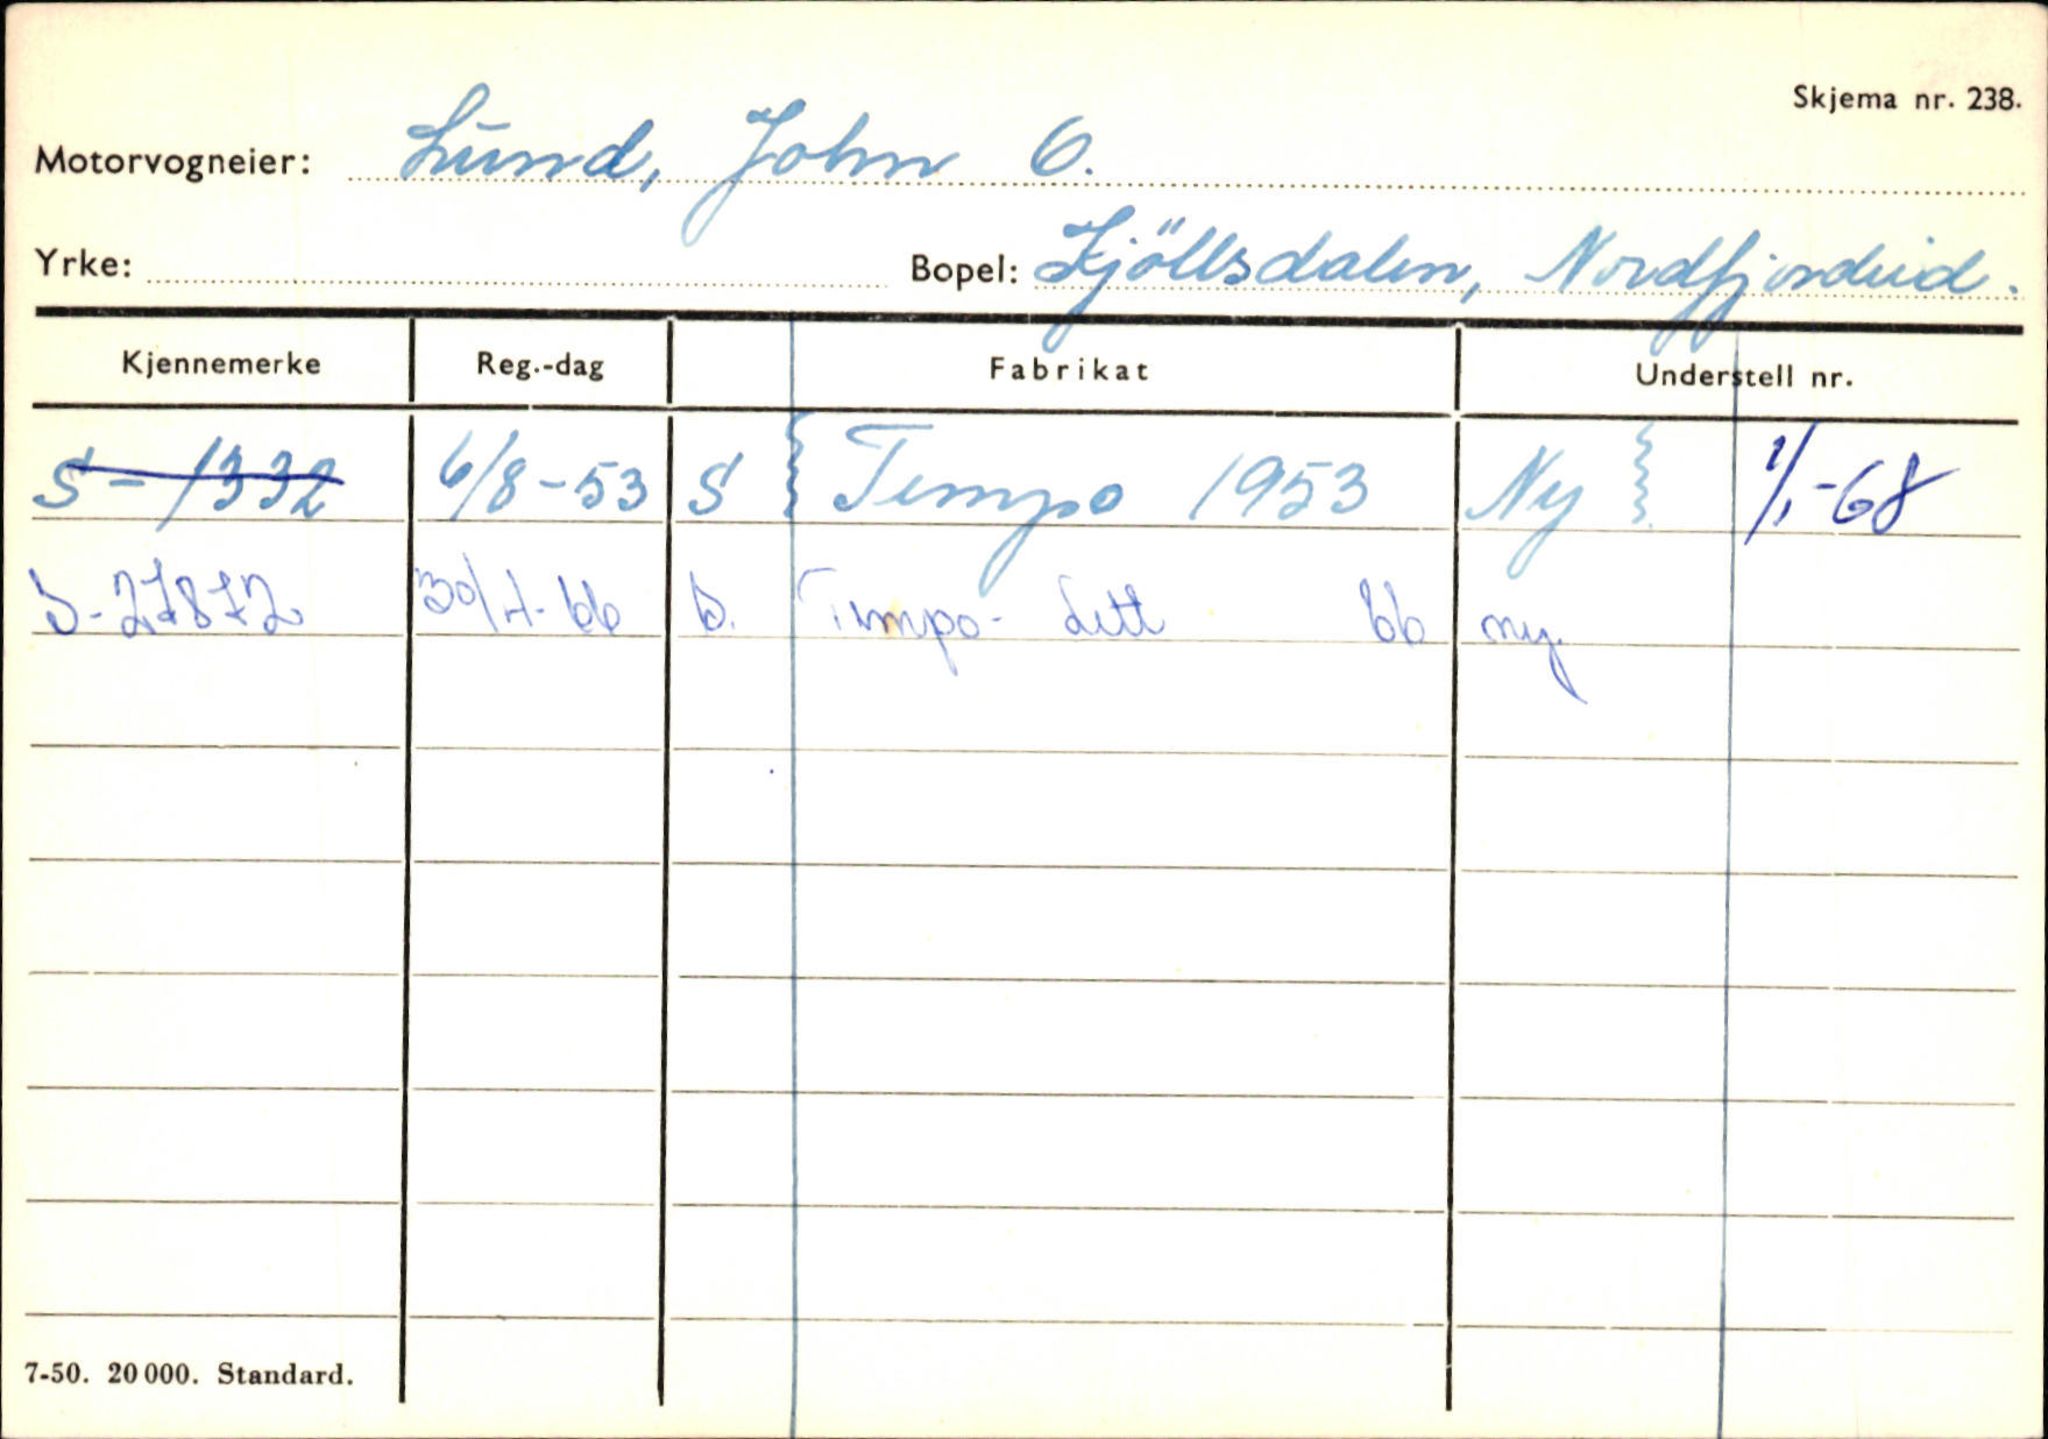 Skjema nr. 238.
Motorvogneier: Lund, John O.
Yrke: Bopel: Kjöllsdalen, Nordfjordeid.
Kjennemerke Reg.-dag Fabrikat Understell nr.
S-1332 6/8-53 S Tempo 1953 Ny 1/1-68
S-27872 30/4-66 S. Tempo- Lett 66 ny.
7-50. 20 000. Standard.